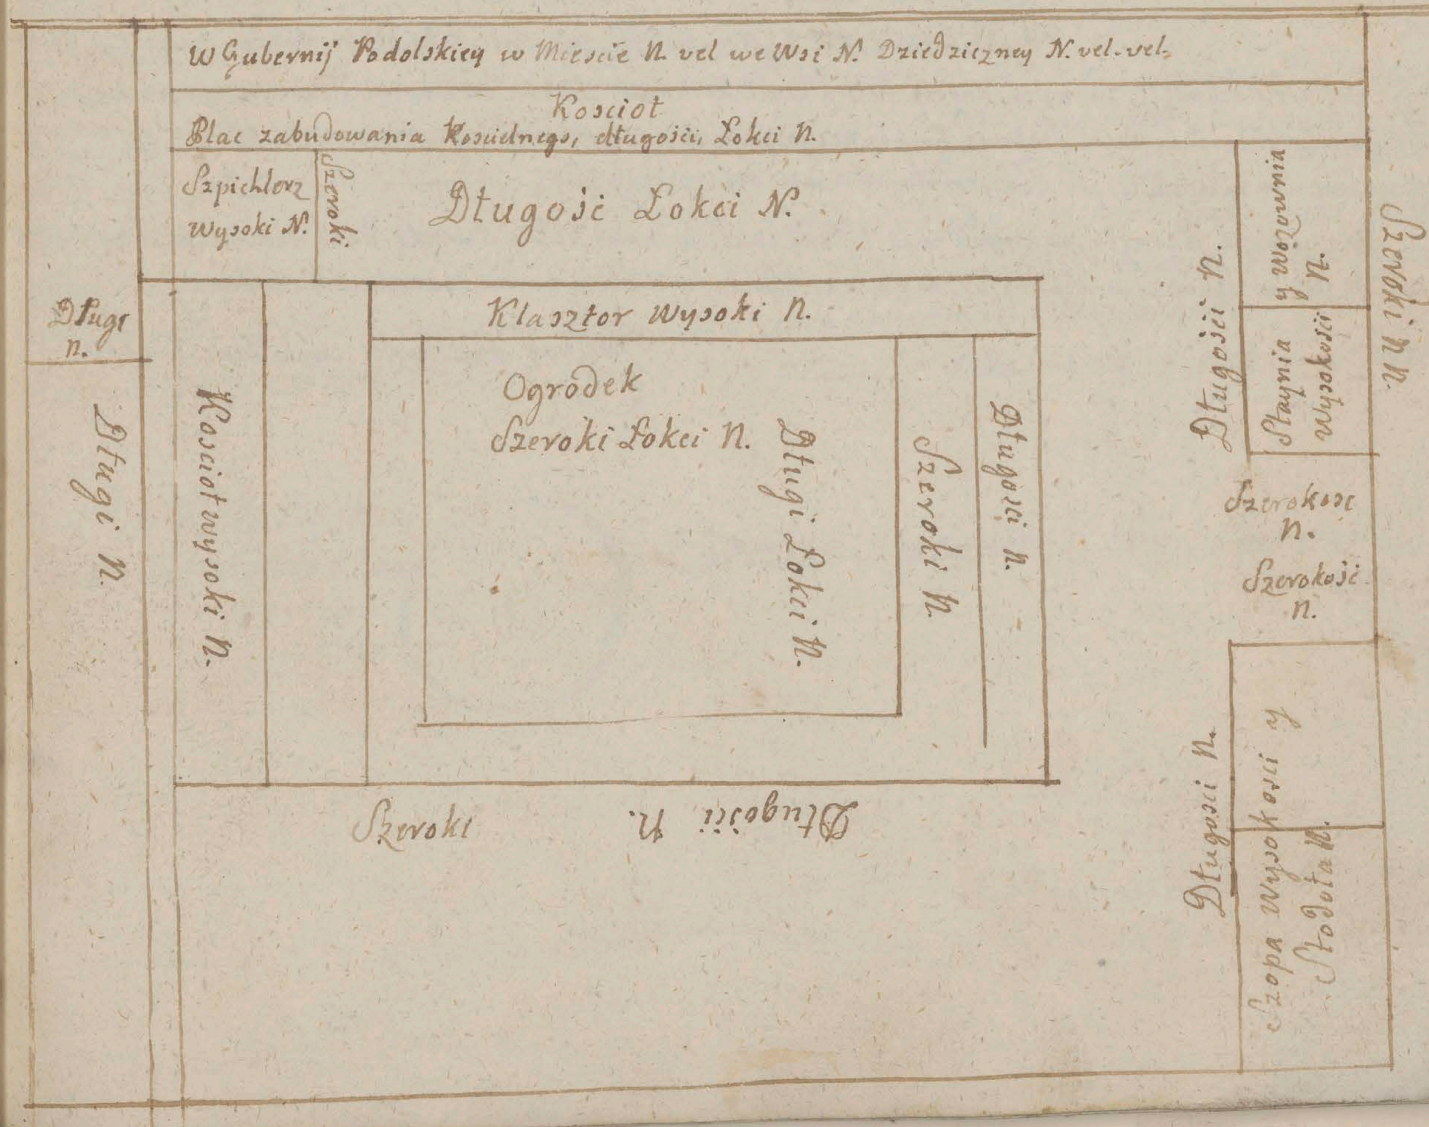 W Gubernij Podolskiey w Miescie N. vel we Wsi N. Dziedziczney N. vel. vel.
Koscioł
Plac zabudowania Koscielnego, długości, Łokci N.
Szpichlerz
wysoki N.
Szeroki.
Długość Łokci N.
y Wozownia
N.
Stajnia
Wysokości
Długości N.
Szeroki N N.
Długi
N.
Klasztor wysoki N.
Ogrodek
Szeroki Łokci N.
Długi Łokci N.
Szeroki N.
Długości N.
Kościoł wysoki N.
Długi N.
Szerokosc
N.
Szerokość
N.
Szeroki
Długości N.
Długosci N.
Szopa Wysokosci y
Stodoła N.